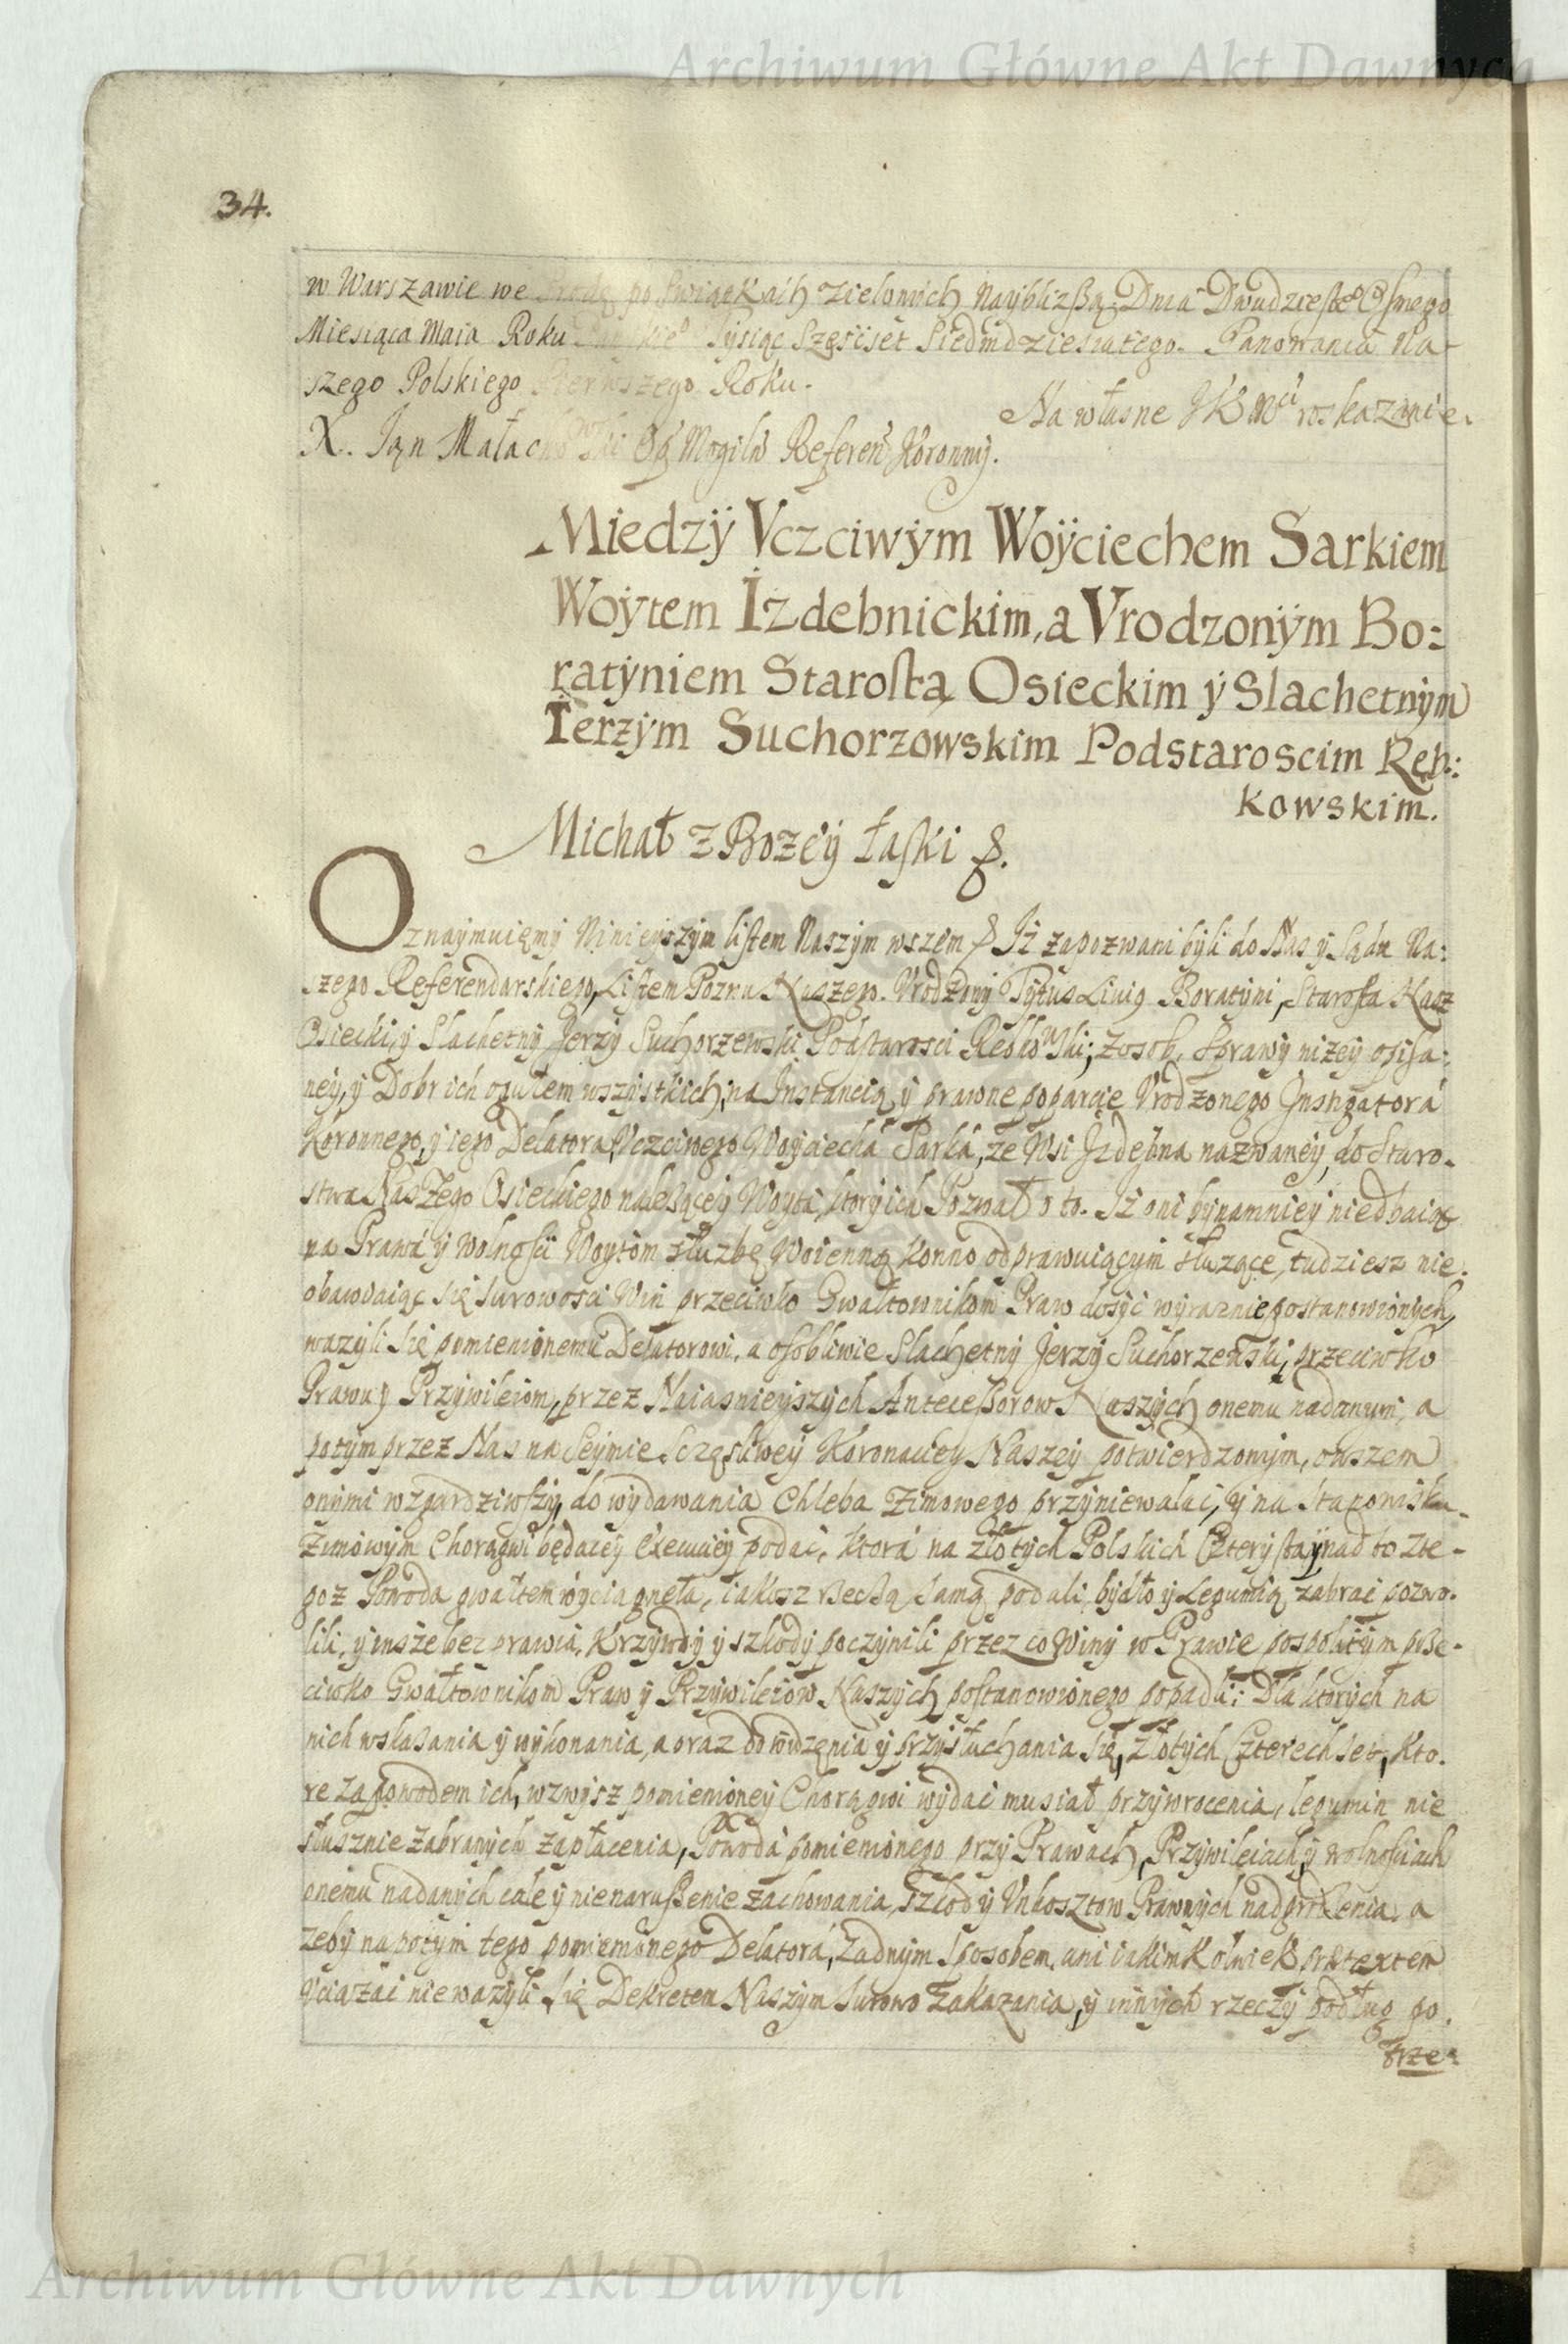 Archiwum Główne Akt Dawnych
34.
w Warszawie we Srodę po Swiątkach Zielonych Naybliżßą. Dnia Dwudzieste° Osmego
Miesiąca Maia Roku Pańskie° Tysiąc Szęsiset Siedmdziesiatego. Panowania Na-
szego Polskiego Pierwszego Roku.
Na własne JKMci roskazanie.
X. Ian Małachowski Mogiln Referen Koronny.
Miedzÿ Vczciwÿm Woÿciechem Sarkiem
Woÿtem Izdebnickim, a Vrodzonÿm Bo:
ratÿniem Starostą Osieckim ÿ Slachetnÿm
Ierzÿm Suchorzowskim Podstaroscim Ręb:
kowskim.
Michał z Bozeÿ łaski &.
Oznaÿmuięmÿ Ninieÿszÿm listem Naszÿm wszem & Iż zapozwani bÿli do Nas ÿ Sądu Na:
szego Referendarskiego, Listem Pozwu Naszego. Vrodzonÿ Tÿtus Liuig Boratÿni, Starosta Nasz
Osiecki, ÿ Slachetnÿ Jerzÿ Suchorzewski Podstarosci Rębkowski; z osob, Sprawÿ niżeÿ opisa:
neÿ, ÿ Dobr ich ogułem wszÿstkich, na Instancią ÿ prawne poparcie Vrodzonego Instigatorá
Koronnego, ÿ iego Delatora, Vczciwego Woÿciecha Sarká, ze Wsi Jzdebna nazwaneÿ, do Staro-
stwa Naszego Osieckiego należąceÿ Woyta, ktorÿ ich Pozwał o to. Iż oni bÿnamnieÿ niedbaiąc
na Prawá ÿ wolnosci Woÿtom służbę Woienną konno odprawuiącÿm służące, tudziesz nie
obawaiąc się surowosci Win przeciwko Gwałtownikom Praw dosÿć wÿraznie postanowionÿch,
ważÿli się pomienionemu Delatorowi, a osobliwie Slachetnÿ Jerzÿ Suchorzewski, przeciwko
Prawu ÿ Przÿwileiom, przez Naiasnieÿszÿch Antecessorow Naszÿch onemu nadanÿm, a
potÿm przez Nas na Seÿmie Sczęsliweÿ Koronacieÿ Naszeÿ potwierdzonÿm, owszem
onÿmi wzgardziwszÿ, do wÿdawania Chleba Zimowego przÿniewalać, ÿ na Stanowisku
Zimowÿm Chorągwi będaceÿ Execucieÿ podać, ktorá na złotÿch Polskich Czterÿsta ÿ nad to z te-
goż Powoda gwałtem wÿciągnęła, iakosz rzeczą samą podali, bÿdło ÿ Legumią zabrać pozwo-
lili, ÿ insze bezprawia, Krzÿwdÿ ÿ szkodÿ poczÿnili przez co Winÿ w Prawie pospolitÿm prze-
ciwko Gwałtownikom Praw ÿ Przÿwileiow Naszÿch postanowionego popadli: Dla ktorÿch na
nich wskazania ÿ wÿkonania, a oraz do widzenia ÿ przÿsłuchania się, złotÿch Czterechset, kto-
re za powodem ich, wzwÿsz pomienioneÿ Chorągwi wÿdać musiał przÿwrocenia, legumin nie
słusznie zabranÿch zapłacenia, Powodá pomienionego przÿ Prawach, Przÿwileiach, ÿ wolnosciach
onemu nadanÿch cale ÿ nienarußenie zachowania, szkod ÿ Vnkosztow Prawnÿch nadgrodzenia, a
żebÿ na potÿm tego pomienionego Delatorá, żadnÿm sposobem, ani iakimkolwiek prætextem
uciążać nieważÿli się Dekretem Naszÿm surowo zakazania, ÿ innÿch rzeczÿ podług po-
trze-
Archiwum Główne Akt Dawnych